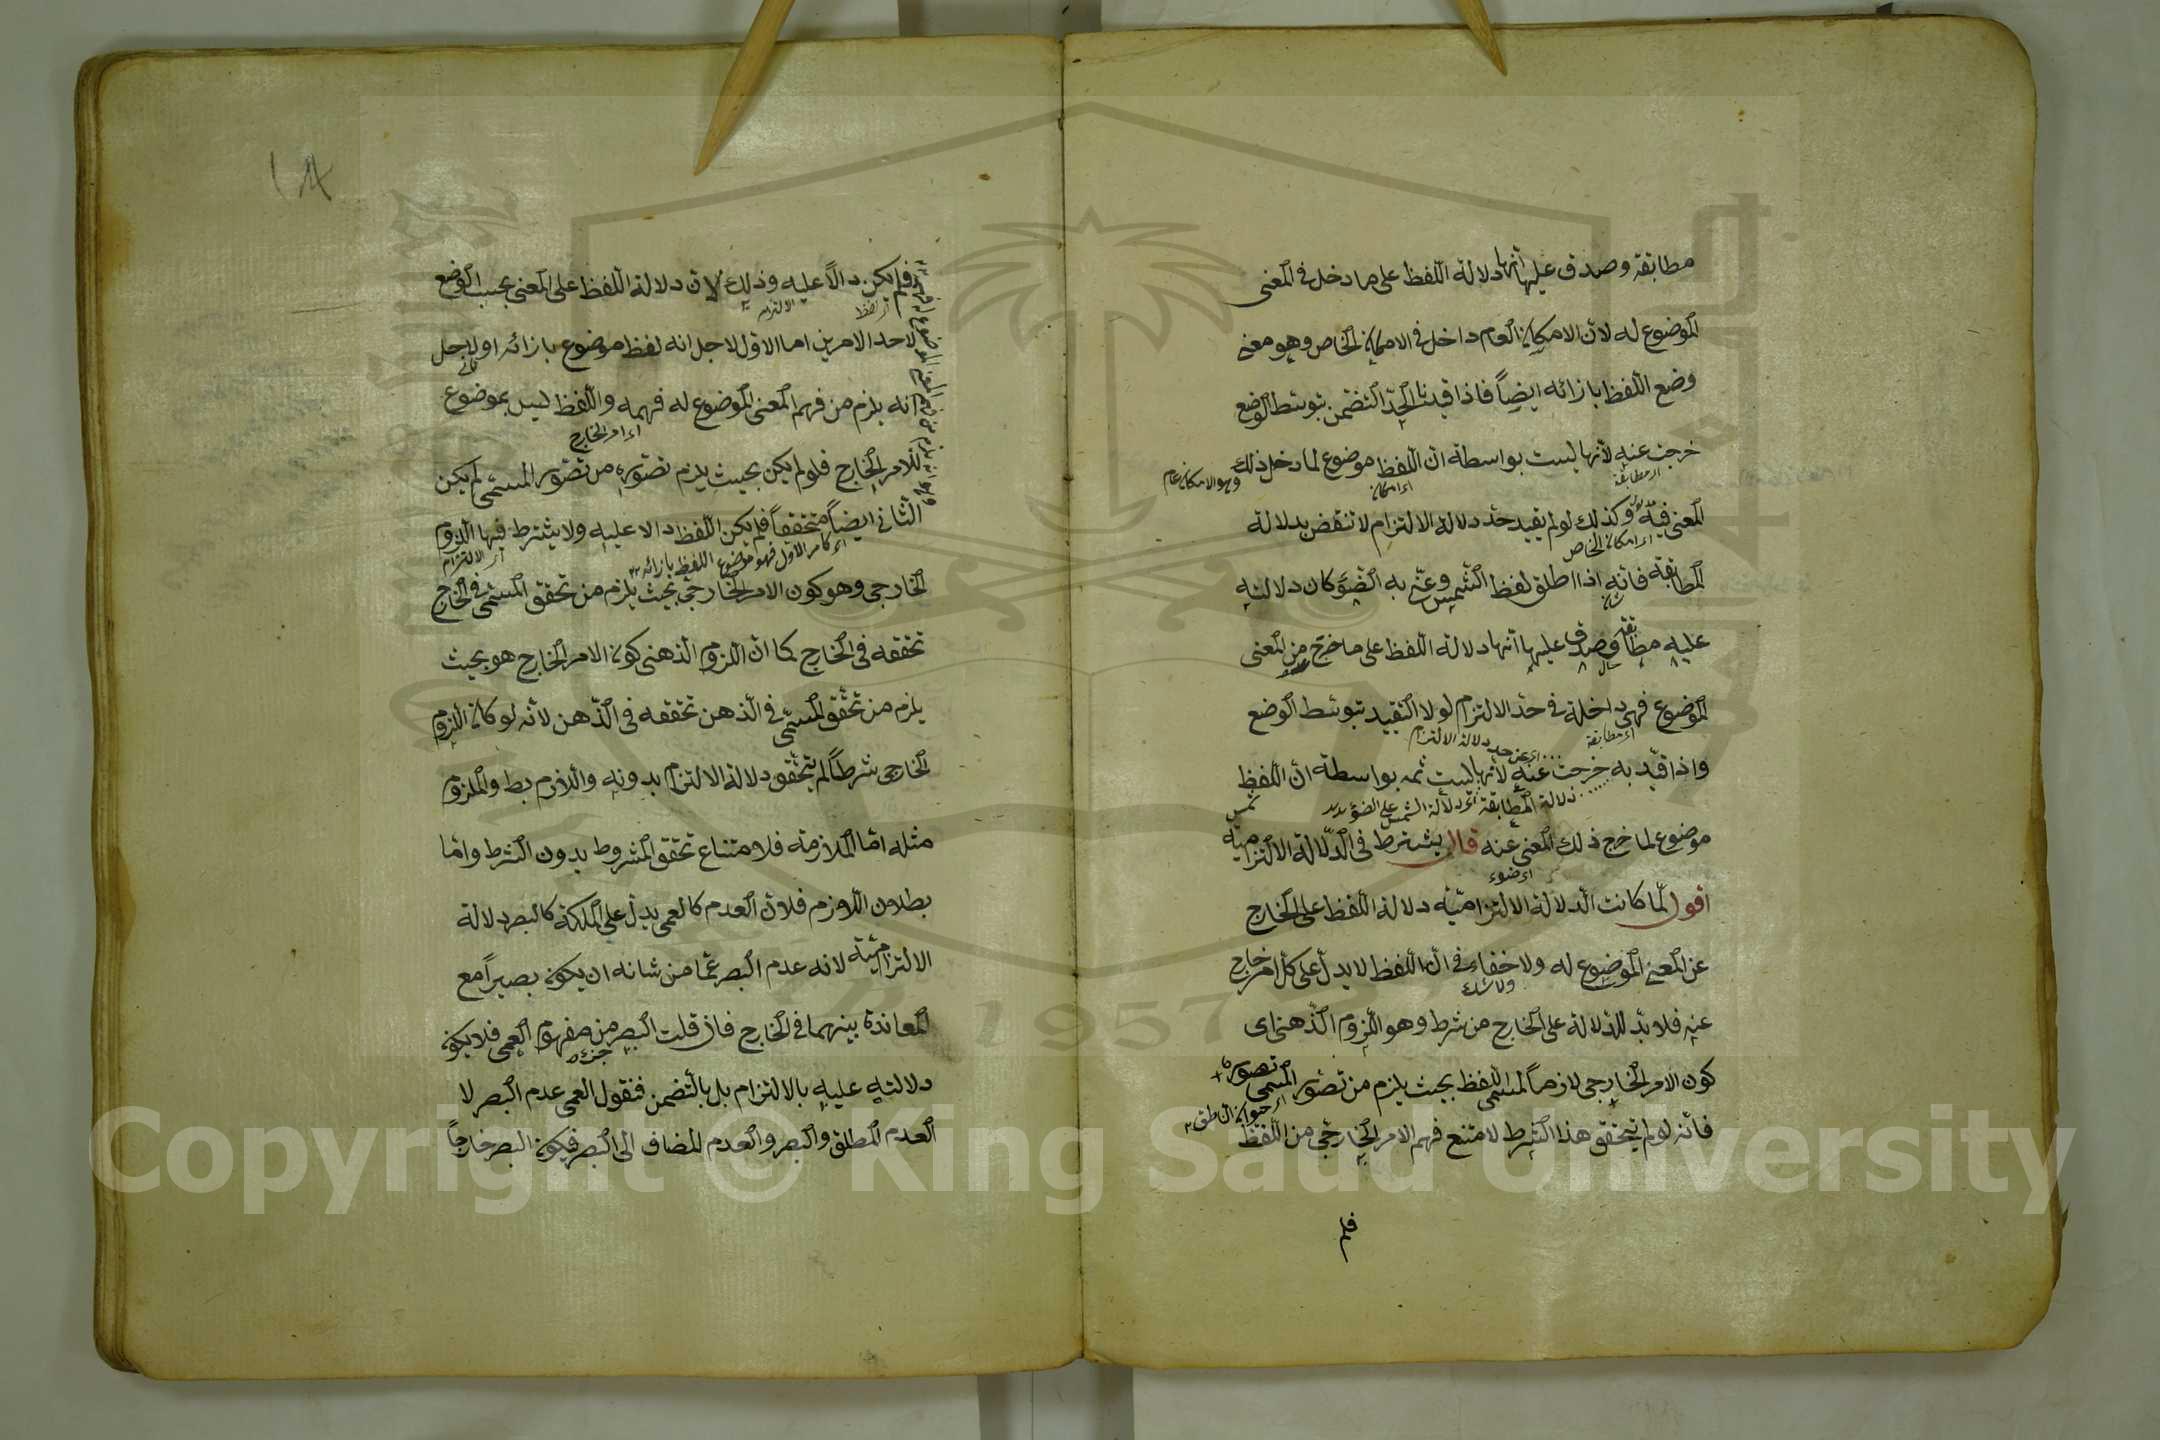 مطابقة وصدق عليها أنها دلالة اللفظ على ما دخل في المعنى
الموضوع له لأن الامكان العام داخل في الامكان الخاص وهو معنى
وضع اللفظ بازائه ايضاً فاذا قيدنا الحدّ التضمن بتوسّط الوضع
خرجت عنه لأنها ليست بواسطة انّ اللفظ موضوع لما دخل ذلك
وهو الامكان عام
اى مطابقة
اى امكان
المعنى فيه وكذلك لو لم يقيد حدّ دلالة الالتزام لانتقض بدلالة
اى امكان الخاص
المطابقة فانه اذا اطلق لفظ الشمس وعنى به الضوء كان دلالته
عليه مطابقة وصدق عليها أنها دلالة اللفظ على ما خرج من المعنى
الموضوع فهي داخلة في حدّ الالتزام لولا التقييد بتوسّط الوضع
اى مطابقة
اى عن حد دلالة الالتزام
واذا قيّد به خرجت عنه لأنها ليست ثمه بواسطة انّ اللفظ
دلالة المطابقة اى دلالة الشمس على الضوء
شمس
موضوع لما خرج ذلك المعنى عنه قال يشترط في الدلالة الالتزامية
اى ضوء
اقول لمّا كانت الدلالة الالتزاميّة دلالة اللفظ على الخارج
عن المعنى الموضوع له ولا خفاء في انّ اللفظ لا يدلّ على كلّ امر خارج
ولا شك
عنه فلا بدّ للدلالة على الخارج من شرط وهو اللزوم الذهنى اى
كون الامر الخارجى لازماً لمسمى اللفظ بحيث يلزم من تصور المسمى تصوره
اى حيوان الناطق
فأنه لو لم يتحقق هذا الشرط لامتنع فهم الامر الخارجى من اللفظ
فلم
١٨
فلم يكن دالاً عليه وذلك لان دلالة اللفظ على المعنى بحسب الوضع
اى لفظ
الالتزام
لاحد الامرين اما الاول لاجل انه لفظ موضوع بازائه او لاجل
ثانى
انه يلزم من فهم المعنى الموضوع له فهمه واللفظ ليس بموضوع
اى امر الخارج
للامر الخارج فلو لم يكن بحيث يلزم تصوره من تصور المسمى لم يكن
الثانى ايضاً متحققاً فلم يكن اللفظ دالا عليه ولا يشترط فيها اللزوم
اى كامر الاول فهو موضوع اللفظ بازائه
اى الالتزام
الخارجى وهو كون الامر الخارجى بحيث يلزم من تحقق المسمى في الخارج
تحققه في الخارج كما انّ اللزوم الذهنى كون الامر الخارج هو بحيث
يلزم من تحقّق المسمّى في الذهن تحققه في الذهن لأنه لو كان اللزوم
الخارجى شرطاً لم يتحقّق دلالة الالتزام بدونه واللازم بط والملزوم
مثله امّا الملازمة فلامتناع تحقق المشروط بدون الشرط وامّا
بطلان اللازم فلانّ العدم كالعمى يدلّ على الملكة كالبصر دلالة
الالتزاميّة لانه عدم البصر عمّا من شانه ان يكون بصيراً مع
المعاندة بينهما في الخارج فان قلت البصر من مفهوم العمى فلا يكون
جزءه
دلالته عليه بالالتزام بل بالتضمن فنقول العمى عدم البصر لا
العدم المطلق والبصر والعدم المضاف الى البصر فيكون البصر خارجاً
1957
Copyright © King Saud University